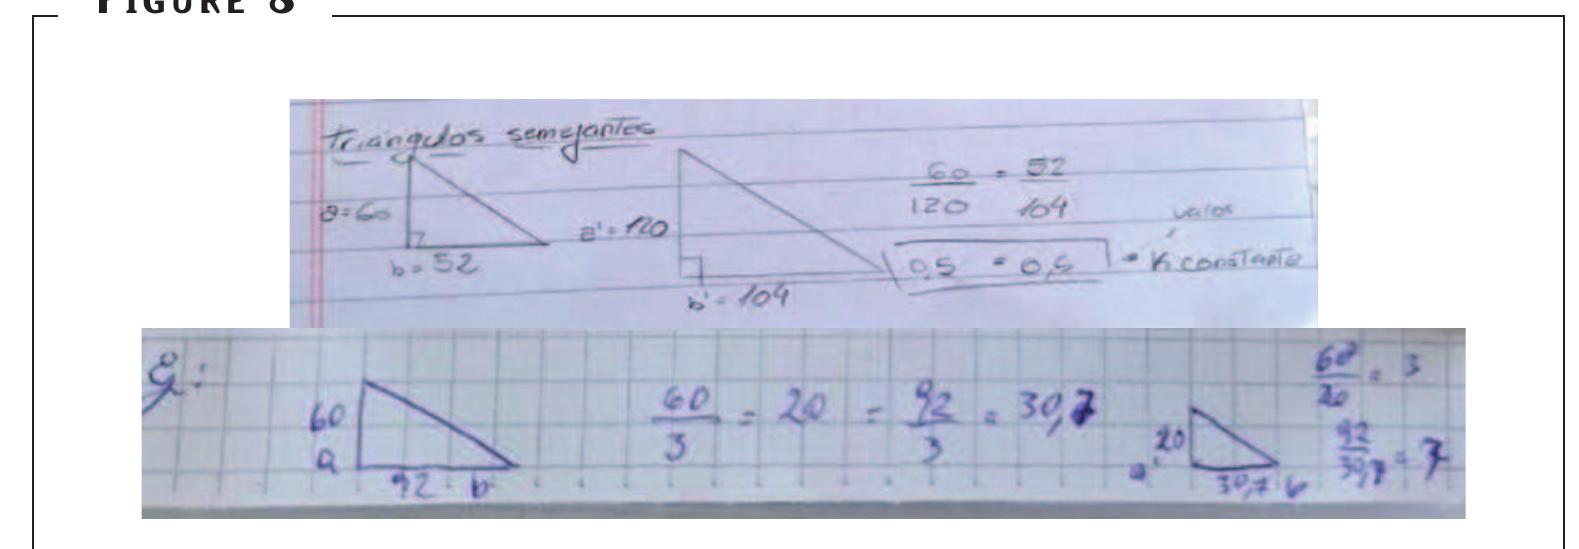 FIGURE 8
triangulos semejantes
a=60
b=52
a'=120
b'=104
60/120 = 52/104
valor
0,5 = 0,5 → K constante
Ej:
60
a
92 b
60/3 = 20 = 92/3 = 30,7
20
a'
30,7 b
60/20 = 3
92/30,7 =